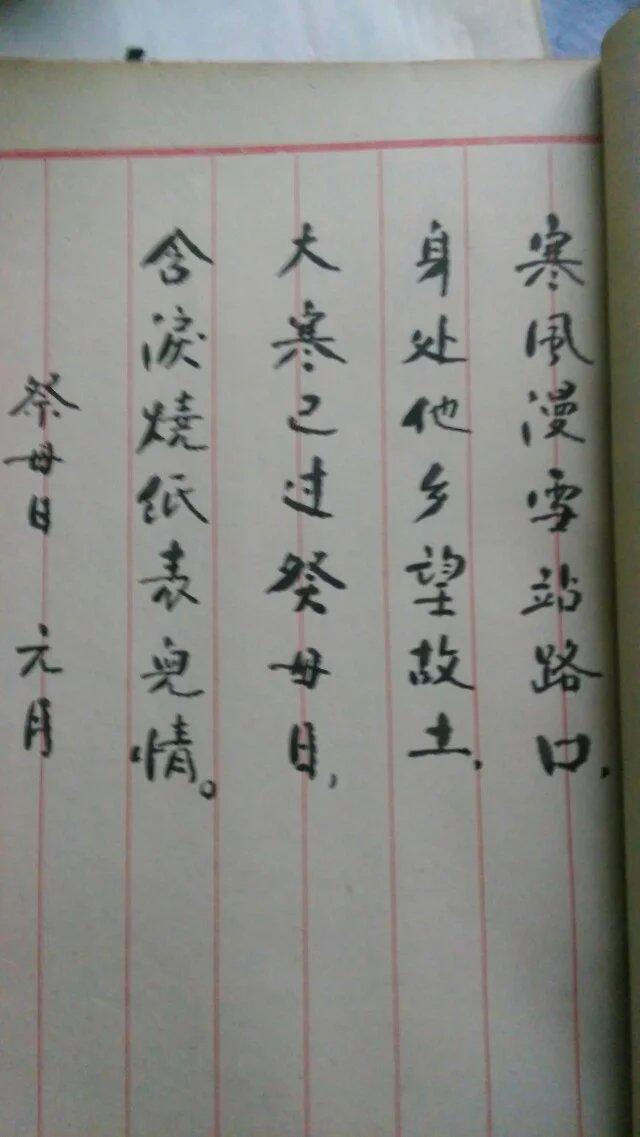 寒風漫雪站路口,
身处他乡望故土,
大寒已过祭母日,
含淚燒纸表兒情。
祭母日 元月